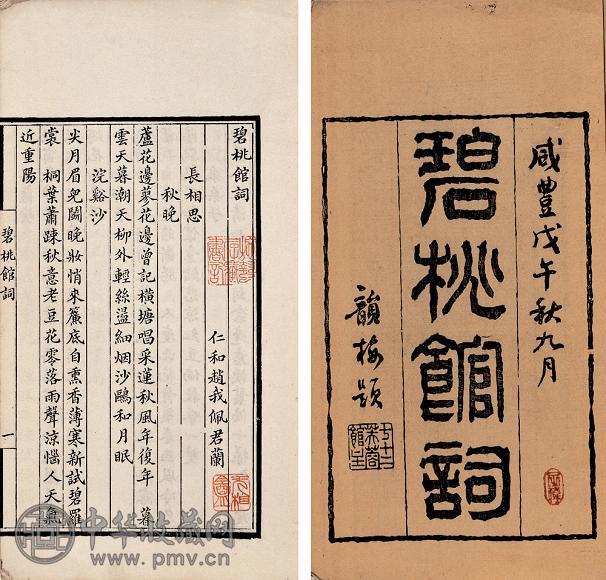 咸豐戊午秋九月
碧桃館詞
韻梅題
碧桃館詞
仁和趙我佩君蘭
長相思
秋晚
蘆花邊蓼花邊曾記橫塘唱采蓮秋風年復年 暮
雲天暮潮天柳外輕絲盪細烟沙鷗和月眠
浣谿沙
尖月眉皃鬬晚妝悄來簾底自熏香薄寒新試碧羅
裳 桐葉蕭踈秋意老豆花零落雨聲涼惱人天氣
近重陽
碧桃館詞 一
中华收藏网
www.pmv.cn